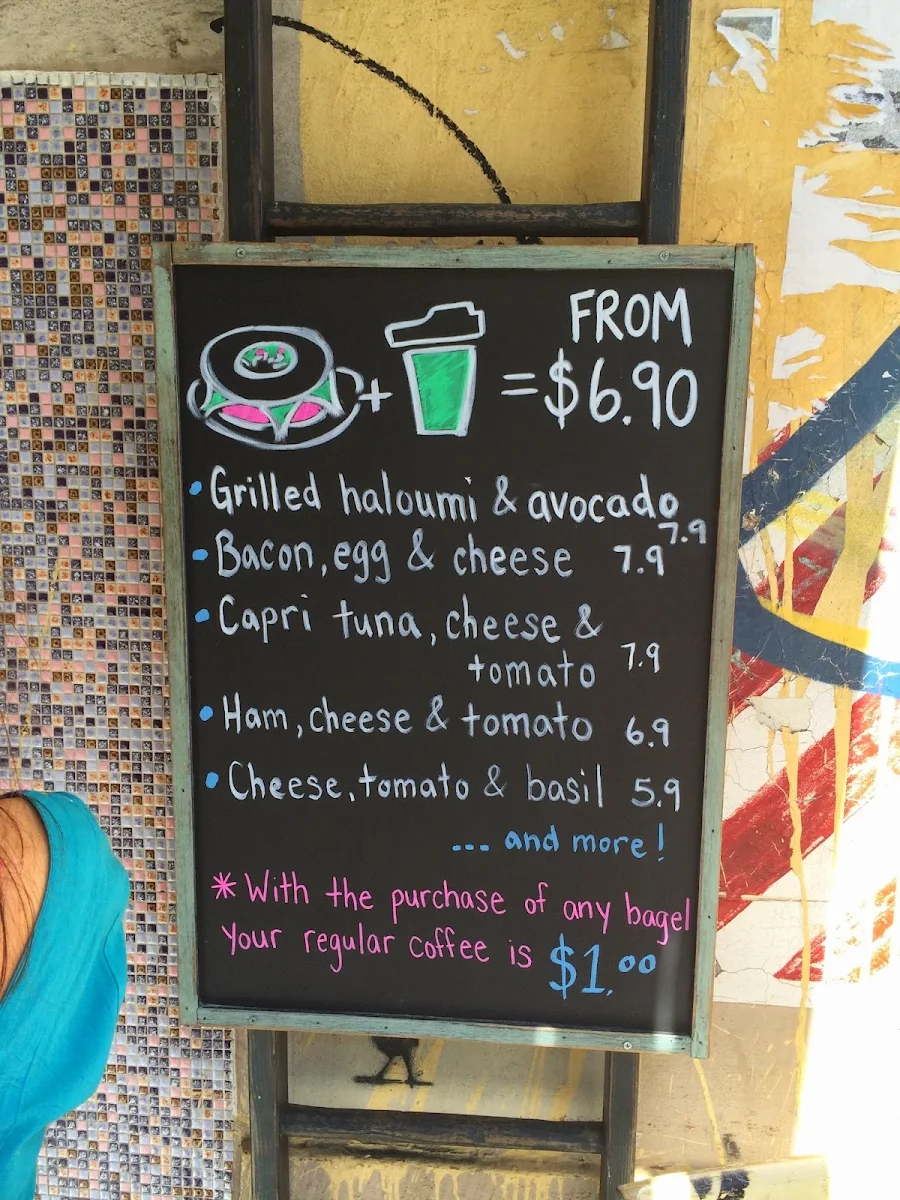 FROM
+ = $6.90
• Grilled haloumi & avocado 7.9
• Bacon, egg & cheese 7.9
• Capri tuna, cheese &
tomato 7.9
• Ham, cheese & tomato 6.9
• Cheese, tomato & basil 5.9
... and more!
* With the purchase of any bagel
Your regular coffee is $1.00